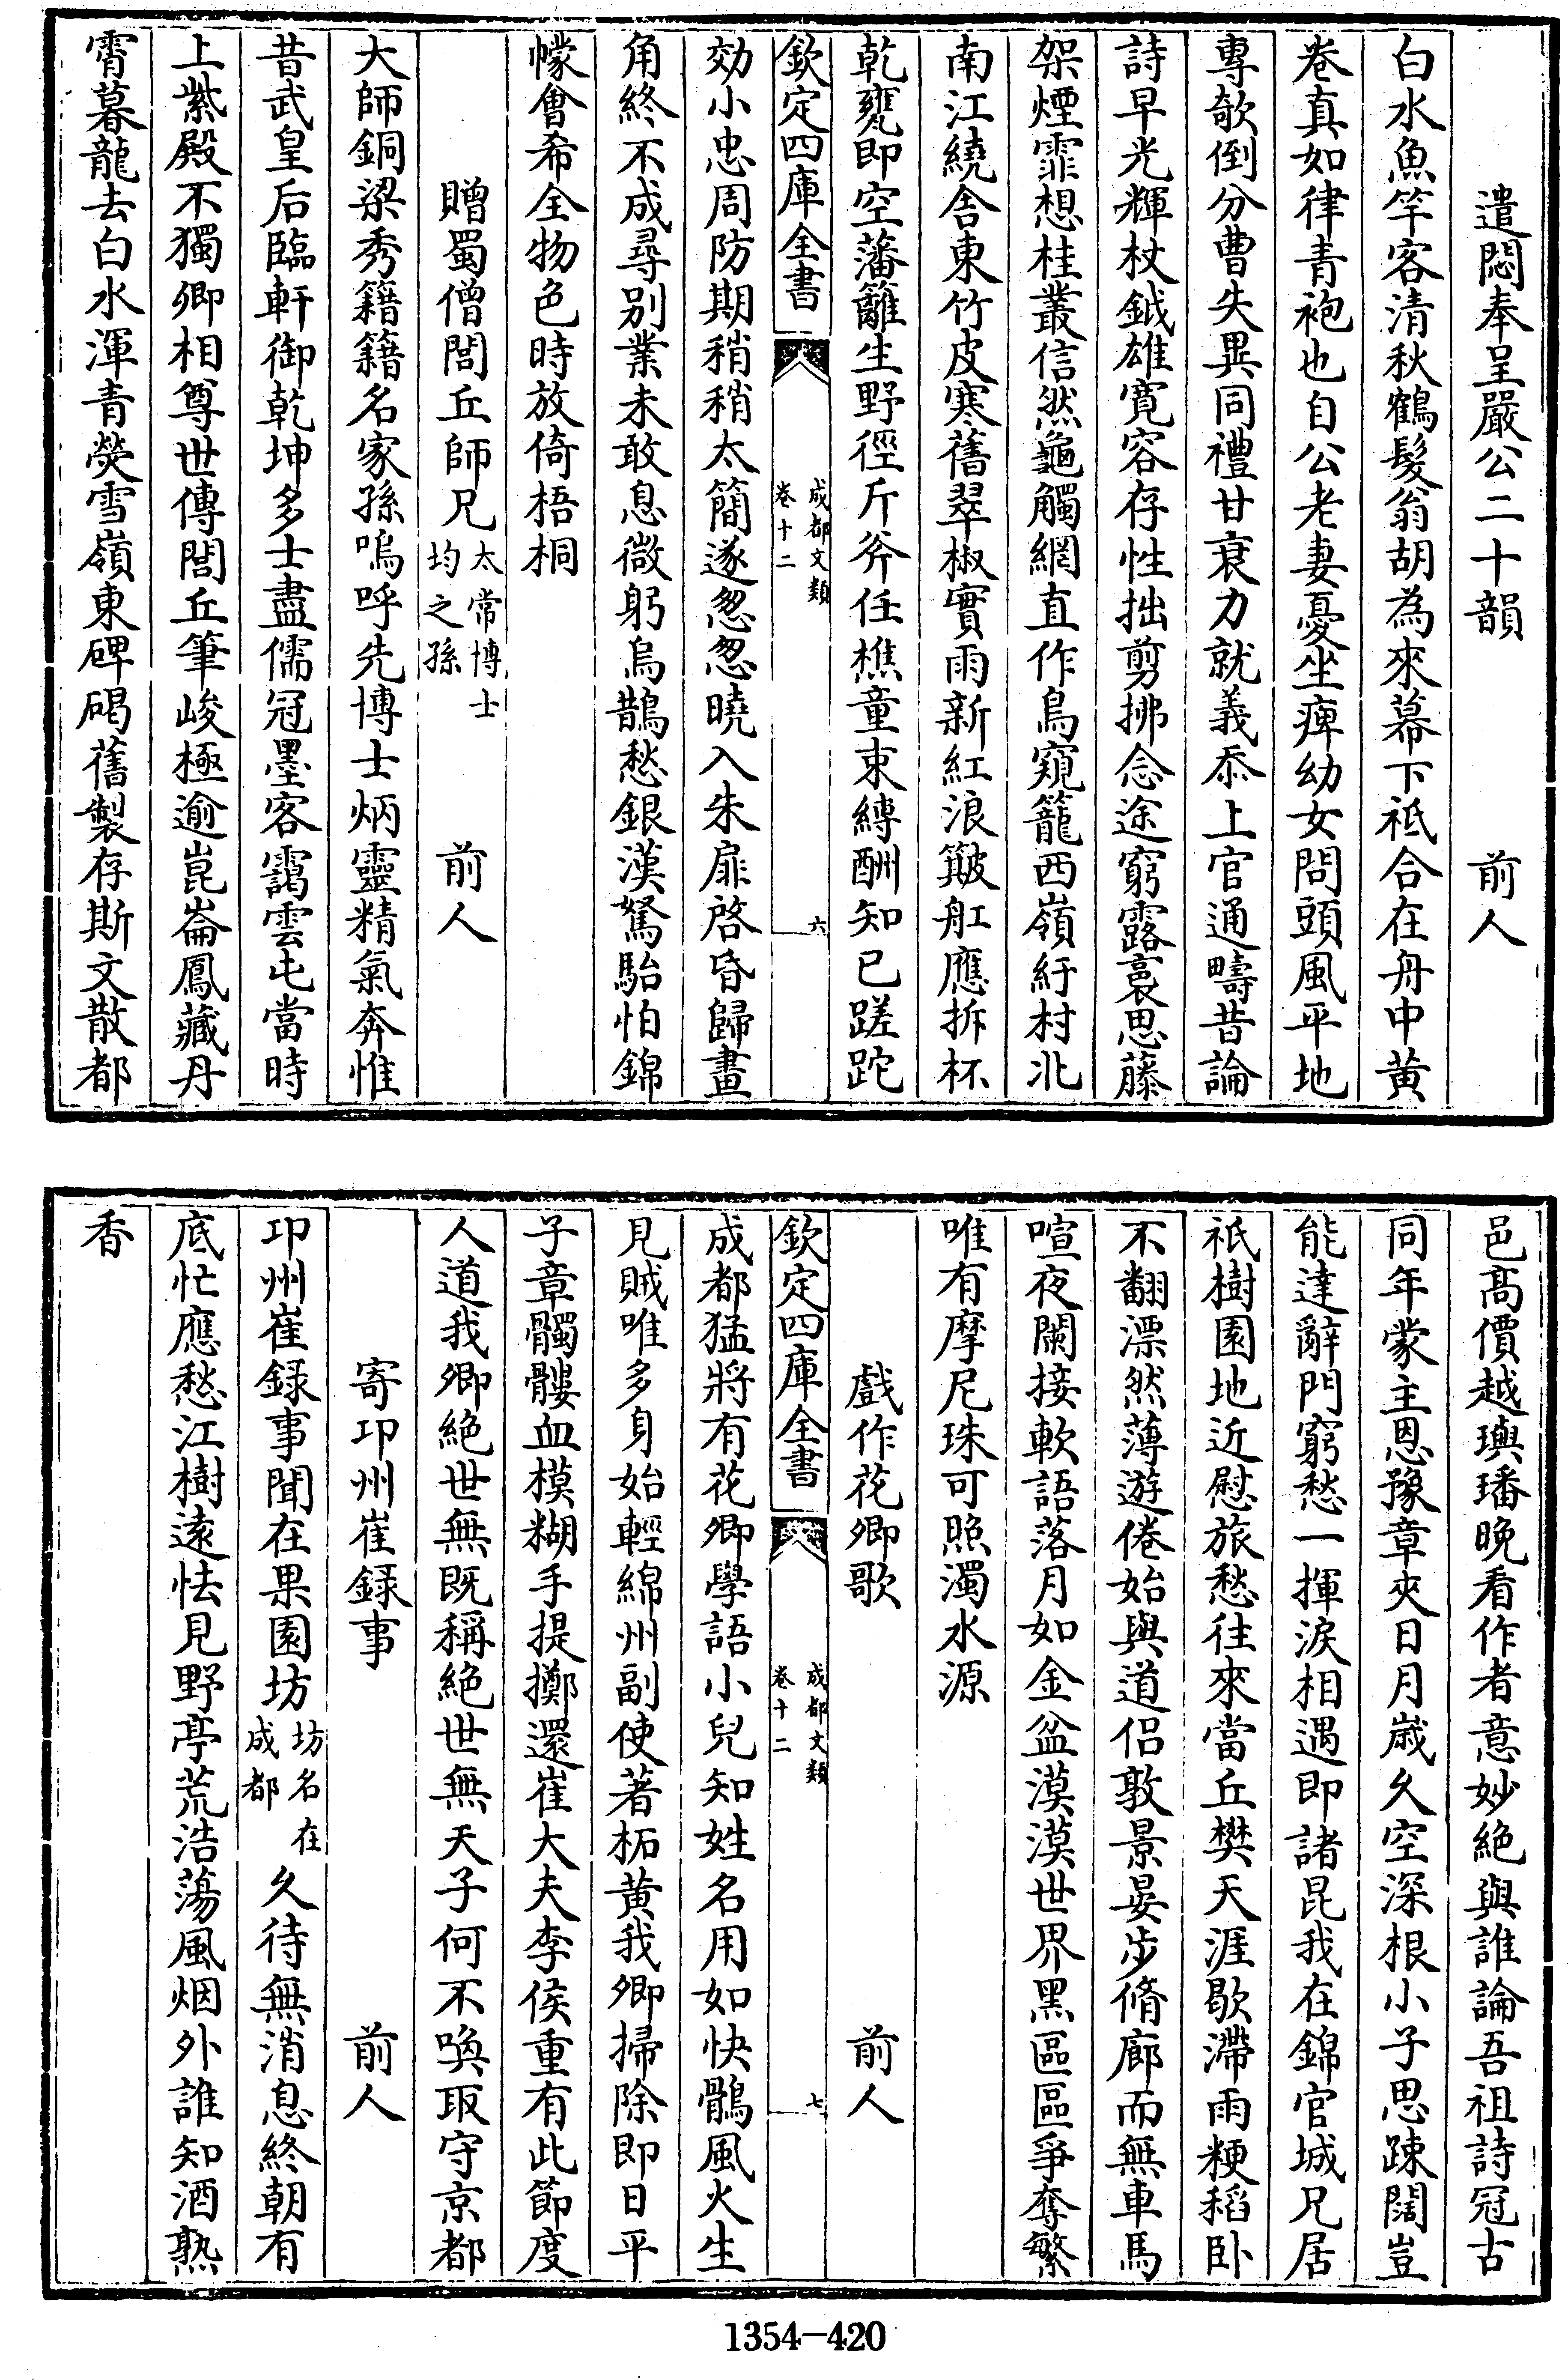 遣悶奉呈嚴公二十韻　前人
白水魚竿客清秋鶴髮翁胡為來幕下祇合在舟中黄
卷真如律青袍也自公老妻憂坐痺幼女問頭風平地
專欹倒分曹失異同禮甘衰力就義忝上官通疇昔論
詩早光輝杖鉞雄寛容存性拙剪拂念途窮露裛思藤
架煙霏想桂叢信然龜觸網直作鳥窺籠西嶺紆村北
南江繞舍東竹皮寒舊翠椒實雨新紅浪簸舡應拆杯
乾甕即空藩籬生野徑斤斧任樵童束縛酬知己蹉跎
欽定四庫全書　成都文類　卷十二　六
効小忠周防期稍稍太簡遂怱怱曉入朱扉啓昏歸畫
角終不成尋别業未敢息微躬烏鵲愁銀漢駑駘怕錦
幪會希全物色時放倚梧桐
贈蜀僧閭丘師兄太常博士均之孫　前人
大師銅梁秀籍籍名家孫嗚呼先博士炳靈精氣奔惟
昔武皇后臨軒御乾坤多士盡儒冠墨客靄雲屯當時
上紫殿不獨卿相尊世傳閭丘筆峻極逾崑崙鳳藏丹
霄暮龍去白水渾青熒雪嶺東碑碣舊製存斯文散都
邑髙價越璵璠晚看作者意妙絶與誰論吾祖詩冠古
同年蒙主恩豫章夾日月嵗久空深根小子思踈闊豈
能達辭門窮愁一揮淚相遇即諸昆我在錦官城兄居
祇樹園地近慰旅愁往來當丘樊天涯歇滯雨粳稻卧
不翻漂然薄遊倦始與道侣敦景晏步脩廊而無車馬
喧夜闌接軟語落月如金盆漠漠世界黑區區爭奪繁
唯有摩尼珠可照濁水源
戲作花卿歌　前人
欽定四庫全書　成都文類　卷十二　七
成都猛將有花卿學語小兒知姓名用如快鶻風火生
見賊唯多身始輕綿州副使著柘黄我卿掃除即日平
子章髑髏血模糊手提擲還崔大夫李侯重有此節度
人道我卿絶世無既稱絶世無天子何不喚取守京都
寄邛州崔録事　前人
邛州崔録事聞在果園坊坊名在成都久待無消息終朝有
底忙應愁江樹逺怯見野亭荒浩蕩風烟外誰知酒熟
香
1354-420